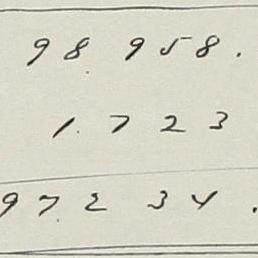 98 958.
1.723
972 34.